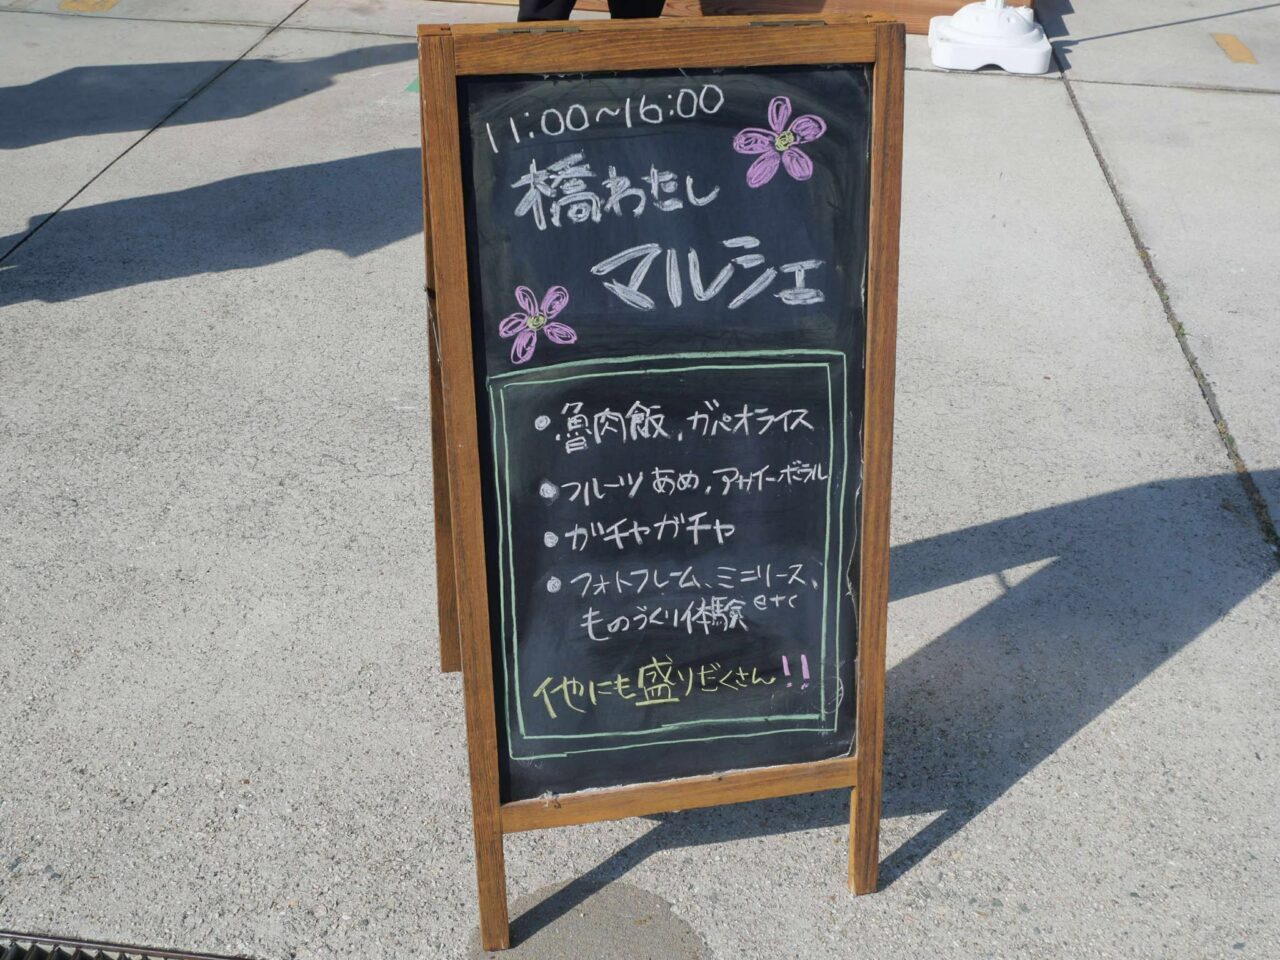 11:00～16:00
橋わたし
マルシェ
・魯肉飯、ガパオライス
・フルーツあめ、アサイーボウル
・ガチャガチャ
・フォトフレーム、ミニリース、
ものづくり体験etc
他にも盛りだくさん!!